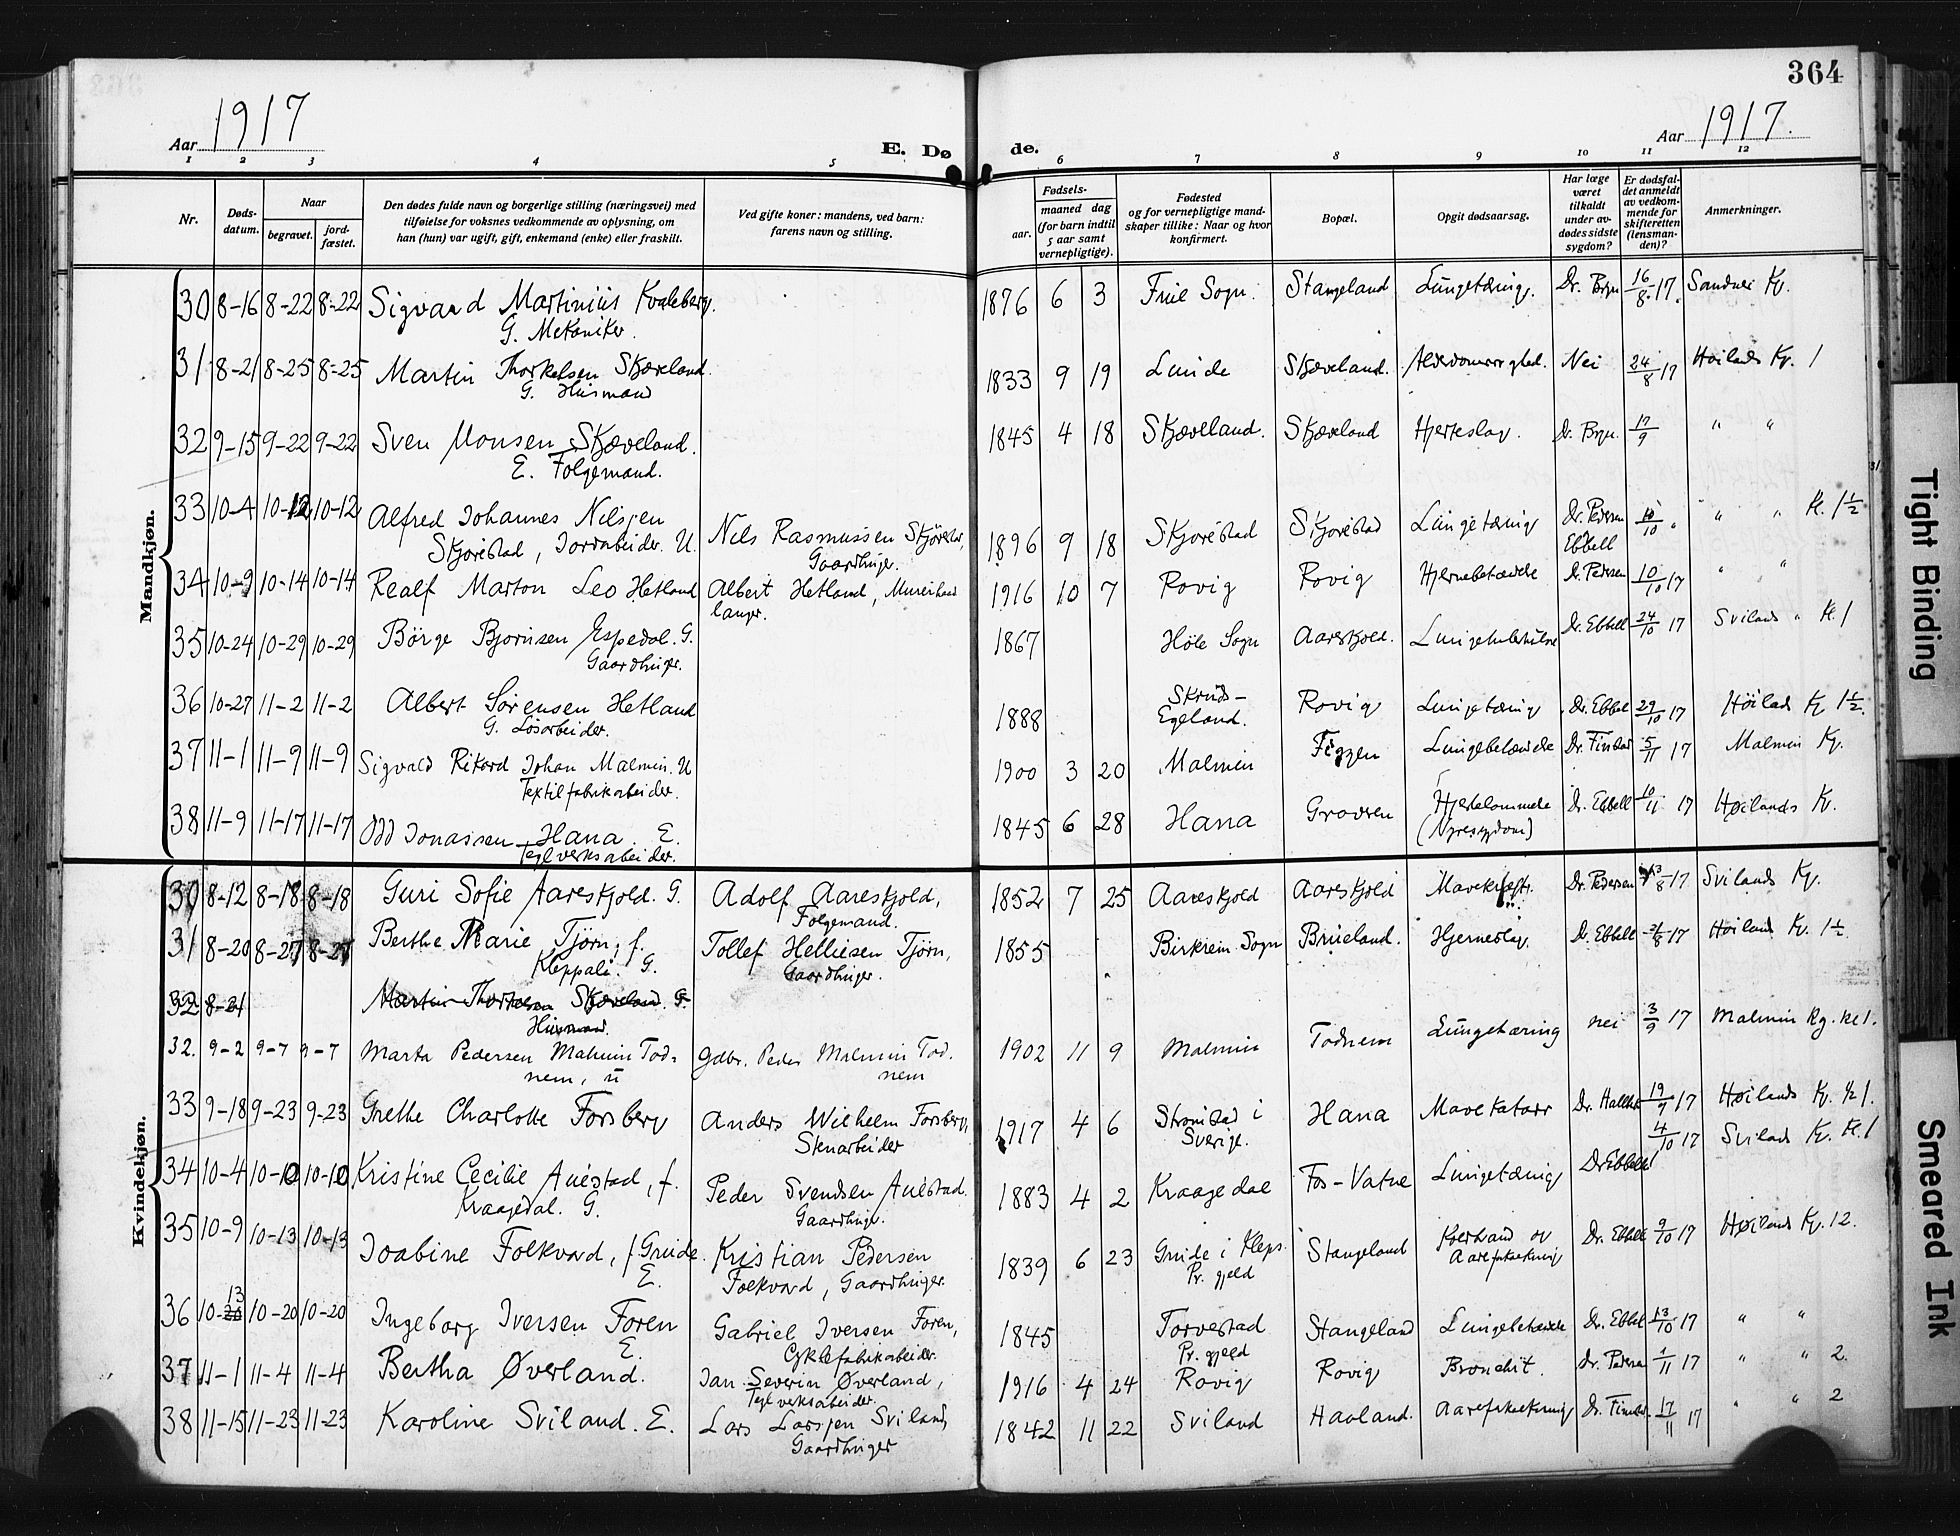 364
Aar 1917
E. Dø
de.
Aar 1917.
1 2 3 4 5 6 7 8 9 10 11 12
Nr.
Døds-
datum.
Naar
begravet.
jord-
fæstet.
Den dødes fulde navn og borgerlige stilling (næringsvei) med
tilføielse for voksnes vedkommende av oplysning, om
han (hun) var ugift, gift, enkemand (enke) eller fraskilt.
Ved gifte koner: mandens, ved barn:
farens navn og stilling.
Fødsels-
aar.
maaned dag
(for barn indtil
5 aar samt
vernepligtige).
Fødested
og for vernepligtige mand-
skaper tillike: Naar og hvor
konfirmert.
Bopæl.
Opgit dødsaarsag.
Har læge
været
tilkaldt
under av-
dødes sidste
sygdom?
Er dødsfal-
det anmeldt
av vedkom-
mende for
skifteretten
(lensman-
den)?
Anmerkninger.
Mandkjøn.
30 8-16 8-22 8-22 Sigvard Martinius Kvaleberg. 1876 6 3 Sogn. Stangeland Lungetæring. Dr. Bryn 16/8 17. Sandnes Kg.
G. Mekaniker.
31 8-21 8-25 8-25 Martin Thorkelsen Skjæveland. 1833 9 19 Lunde Skjæveland. Nei 24/8 17 Høilands Kg. 1
G. Husmand
32 9-15 9-22 9-22 Sven Monsen Skjæveland. 1845 4 18 Skjæveland. Skjæveland Hjerteslag. Dr. Bryn. 17/9 " "
E. Følgemand.
33 10-4 10-12 10-12 Alfred Johannes Nilssen Nils Rasmussen 1896 9 18 Skjørestad Skjørestad Lungetæring Dr. Pedersen " " Kl. 1½
Skjørestad, Jordarbeider. U. Gaardbruger. Ebbell
34 10-9 10-14 10-14 Realf Marton Leo Hetland Albert Hetland, 1916 10 7 Rovig Rovig Hjernebetændelse Dr. Pedersen 10/10 17 " "
langer.
35 10-24 10-29 10-29 Børge Bjørnsen Espedal. G. 1867 Høle Sogn Aareskjold. Dr. Ebbell 24/10 17 Svilands " Kl. 1
Gaardbruger.
36 10-27 11-2 11-2 Albert Sørensen Hetland 1888 Skrud-
Egeland. Rovig Lungetæring Dr. Ebbell 29/10 17 Høilands Kg 1½.
G. Løsarbeider.
37 11-1 11-9 11-9 Sigvald Rikard Johan Malmin. U 1900 3 20 Malmin Figgen Lungebetændelse 5/11 17 Malmin Kg.
Textilfabrikarbeider.
38 11-9 11-17 11-17 Odd Jonassen Hana. E. 1845 6 28 Hana Gravren Hjertelammelse Dr. Ebbell 10/11 17 Høilands Kg.
Teglverksarbeider. (Nyresygdom)
Kvindekjøn.
30 8-12 8-18 8-18 Guri Sofie Aareskjold. G. Adolf Aareskjold, 1852 7 25 Aareskjold Aareskjold Dr. Pedersen 13/8 17 Svilands Kg.
Følgemand.
31 8-20 8-27 8-27 Berthe Marie Tjørn, f. Tollef Helliesen Tjørn, 1855 Birkrem Sogn Brueland. Hjerneslag. Dr. Ebbell 17 Høiland Kg. 1½
Kleppali. G. Gaardbruger.
32 8-21 Martin Thorkelsen Skjæveland. G
Husmand.
32. 9-2 9-7 9-7 Marta Pedersen Malmin Tod- Gdbr. Peder Malmin Tod. 1902 11 9 Malmin Todnem Lungetæring nei 3/9 17 Malmin Kg. Kl 1.
nem, u nem
33 9-18 9-23 9-23 Grethe Charlotte Forsberg Anders Wilhelm Forsberg, 1917 4 6 Strømstad i Hana Mavekatarr 19/9 17 Høilands Kg. Kl 1.
Stenarbeider Sverige.
34 10-4 10-10 10-10 Kristine Cecilie Auestad, f. Peder Svendsen Auestad. 1883 4 2 Kraagedal Fos-Vatne Lungetæring Dr Ebbell 4/10 17 Svilands Kg. Kl. 1
Kraagedal. G. Gaardbruger.
35 10-9 10-13 10-13 Joabine Folkvord, f. Grude. Kristian Pedersen 1839 6 23 Grude i Klepp Stangeland og Dr. Ebbell 9/10 17 Høilands Kg. 12.
E. Folkvord, Gaardbruger. Pr. gjeld Aareforkalkning
36 10-13 20 10-20 10-20 Ingeborg Iversen Foren Gabriel Iversen Foren, 1845 Torvestad Stangeland Lungebetændelse Dr. Ebbell 13/10 17 " "
E. Cyklefabrikarbeider. Pr. gjeld
37 11-1 11-4 11-4 Bertha Øverland. Jan Severin Øverland, 1916 4 24 Rovig Rovig Bronchit. Dr. Pedersen 1/11 17 " " 2.
Teglverksarbeider.
38 11-15 11-23 11-23 Karoline Sviland. E. Lars Larssen Sviland, 1842 11 22 Sviland Haaland. Aareforkalkning 17/11 17 " " 2
Gaardbruger
Tight Binding
Smeared Ink